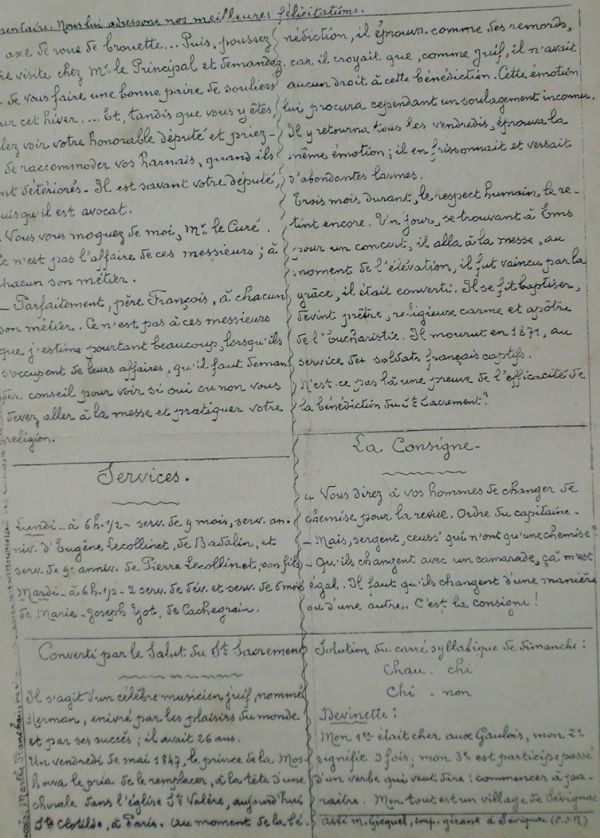 mentaire. Nous lui adressons nos meilleures félicitations.
axe de roue de brouette... Puis, poussez
visite chez Mr le Principal et demandez
de vous faire une bonne paire de souliers
ur cet hiver.... Et, tandis que vous y êtes
lez voir votre honorable député et priez-
de raccommoder vos harnais, quand ils
nt détériorés. Il est savant votre député,
uisqu'il est avocat.
Vous vous moquez de moi, Mr le Curé.
Ce n'est pas l'affaire de ces messieurs; à
chacun son métier.
_ Parfaitement, père François, à chacun
son métier. Ce n'est pas à ces messieurs
que j'estime pourtant beaucoup, lorsqu'ils
s'occupent de leurs affaires, qu'il faut deman
der conseil pour voir si oui ou non vous
devez aller à la messe et pratiquer votre
religion.
Services.
Lundi - à 6h.1/2 - serv. de 9 mois, serv. an.
niv. d'Eugène Lecollinet, de Badalin, et
serv. de 9e anniv. de Pierre Lecollinet, son fils
Mardi - à 6h.1/2 - 2 serv. de dév. et serv. de 6 mois
de Marie-Joseph Eyot, de Cachegrain.
Converti par le Salut du St Sacremen
Il s'agit d'un célèbre musicien juif, nommé
Herman, enivré par les plaisirs du monde
et par ses succès; il avait 26 ans.
Un vendredi de mai 1847, le prince de la Mos
kowa le pria de le remplacer, à la tête d'une
chorale dans l'église Ste Valère, aujourd'hui
Ste Clotilde, à Paris. Au moment de la bé
nédiction, il éprouva comme des remords,
car il croyait que, comme Juif, il n'avait
aucun droit à cette bénédiction. Cette émotion
lui procura cependant un soulagement inconnu.
Il y retourna tous les vendredis, éprouva la
même émotion; il en frissonnait et versait
d'abondantes larmes.
Trois mois durant, le respect humain le re-
tint encore. Un jour, se trouvant à Ems
pour un concert, il alla à la messe, au
moment de l'élévation, il fut vaincu par la
grâce, il était converti. Il se fit baptiser,
devint prêtre, religieux carme et apôtre
de l'Eucharistie. Il mourut en 1871, au
service des soldats français captifs.
N'est-ce pas là une preuve de l'efficacité de
la bénédiction du St Sacrement?
La Consigne.
"Vous direz à vos hommes de changer de
chemise pour la revue. Ordre du capitaine.
_ Mais, sergent, ceuss' qui n'ont qu'une chemise?
_ Qu'ils changent avec un camarade, ça m'est
égal. Il faut qu'ils changent d'une manière
ou d'une autre. C'est la consigne!
Solution du carré syllabique de dimanche:
Chau - chi
Chi - non
Devinette:
Mon 1er était cher aux Gaulois, mon 2e
signifie 3 fois, mon 3e est participe passé
d'un verbe qui veut dire: commencer à pa-
raître. Mon tout est un village de Sévignac
abbé M. Gicquel, imp. gérant à Sévignac (C.d.N)